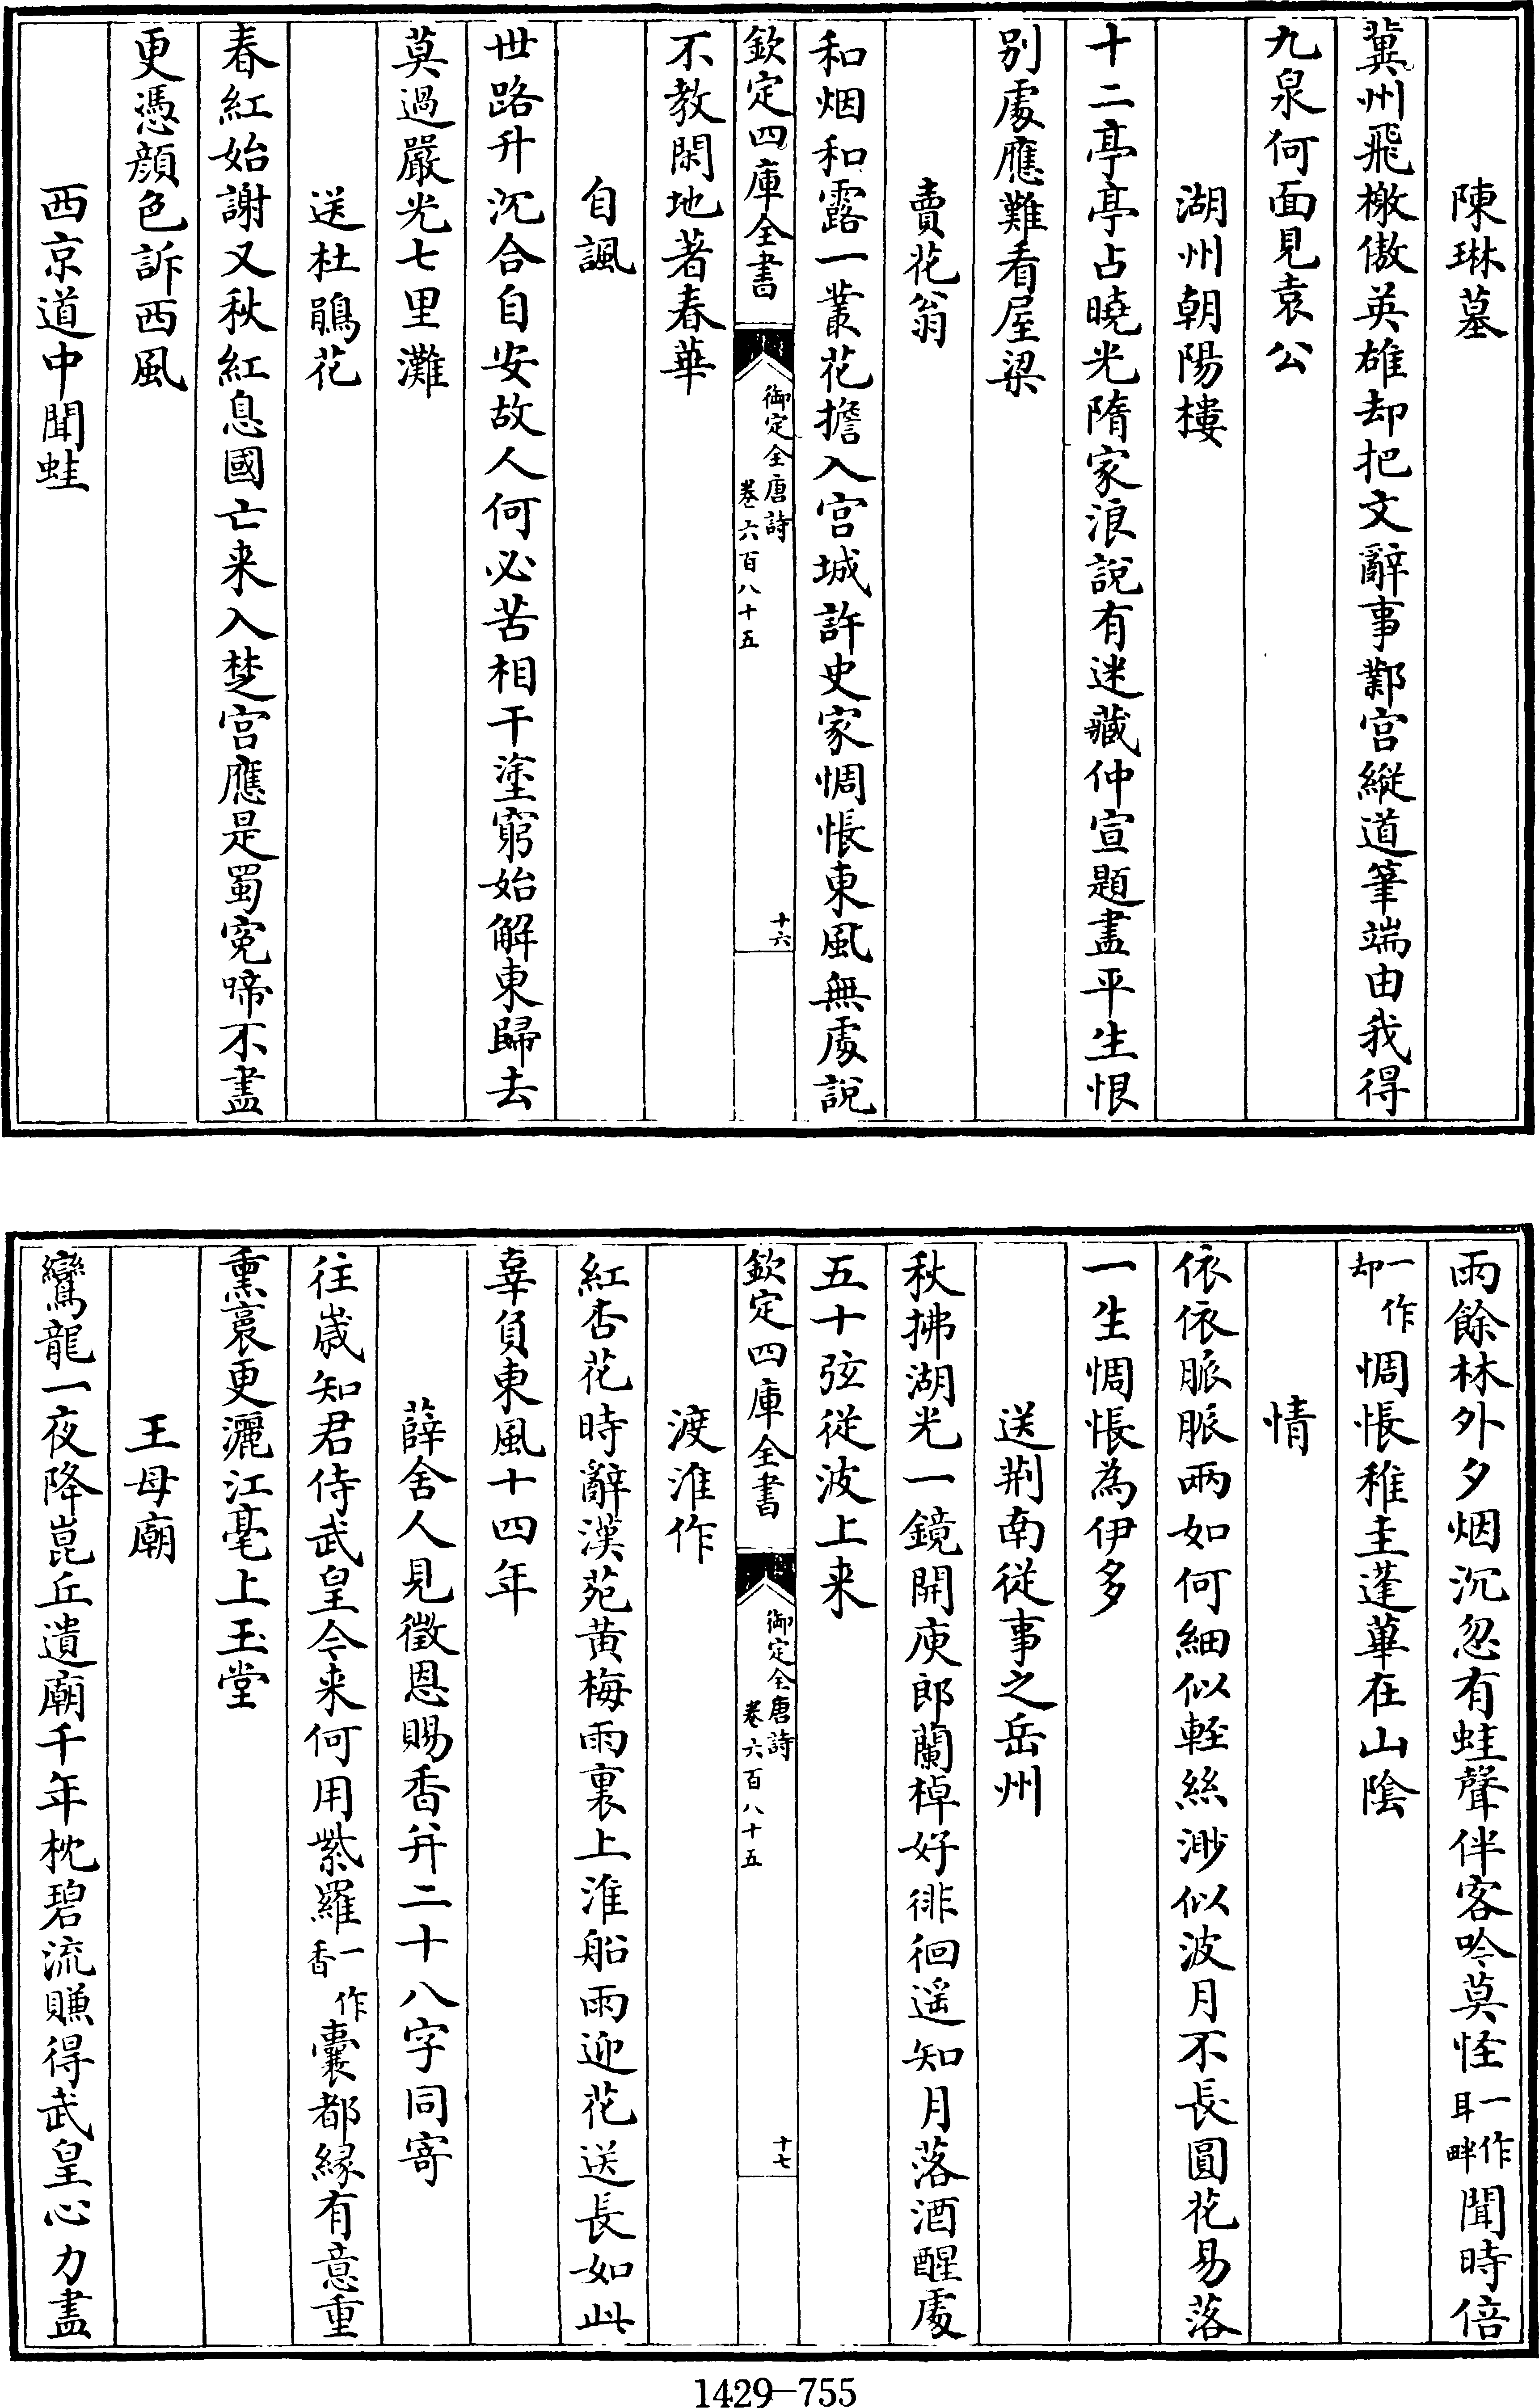 陳琳墓
冀州飛檄傲英雄却把文辭事鄴宫縱道筆端由我得
九泉何面見袁公
湖州朝陽樓
十二亭亭占曉光隋家浪說有迷藏仲宣題盡平生恨
别處應難看屋梁
賣花翁
和烟和露一叢花擔入宫城許史家惆悵東風無處說
欽定四庫全書
御定全唐詩
卷六百八十五
十六
不教閑地著春華
自諷
世路升沉合自安故人何必苦相干塗窮始解東歸去
莫過嚴光七里灘
送杜鵑花
春紅始謝又秋紅息國亡来入楚宫應是蜀寃啼不盡
更憑顔色訴西風
西京道中聞蛙
雨餘林外夕烟沉忽有蛙聲伴客吟莫怪一作耳畔聞時倍
一作却惆悵稚圭蓬蓽在山隂
情
依依脈脈兩如何細似輕絲渺似波月不長圓花易落
一生惆悵為伊多
送荆南從事之岳州
秋拂湖光一鏡開庾郎蘭棹好徘徊遥知月落酒醒處
五十弦從波上来
欽定四庫全書
御定全唐詩
卷六百八十五
十七
渡淮作
紅杏花時辭漢苑黄梅雨裏上淮船雨迎花送長如此
辜負東風十四年
薛舍人見徵恩賜香并二十八字同寄
往嵗知君侍武皇今来何用紫羅一作香囊都緣有意重
熏裛更灑江毫上玉堂
王母廟
鸞龍一夜降崑丘遺廟千年枕碧流賺得武皇心力盡
1429—755